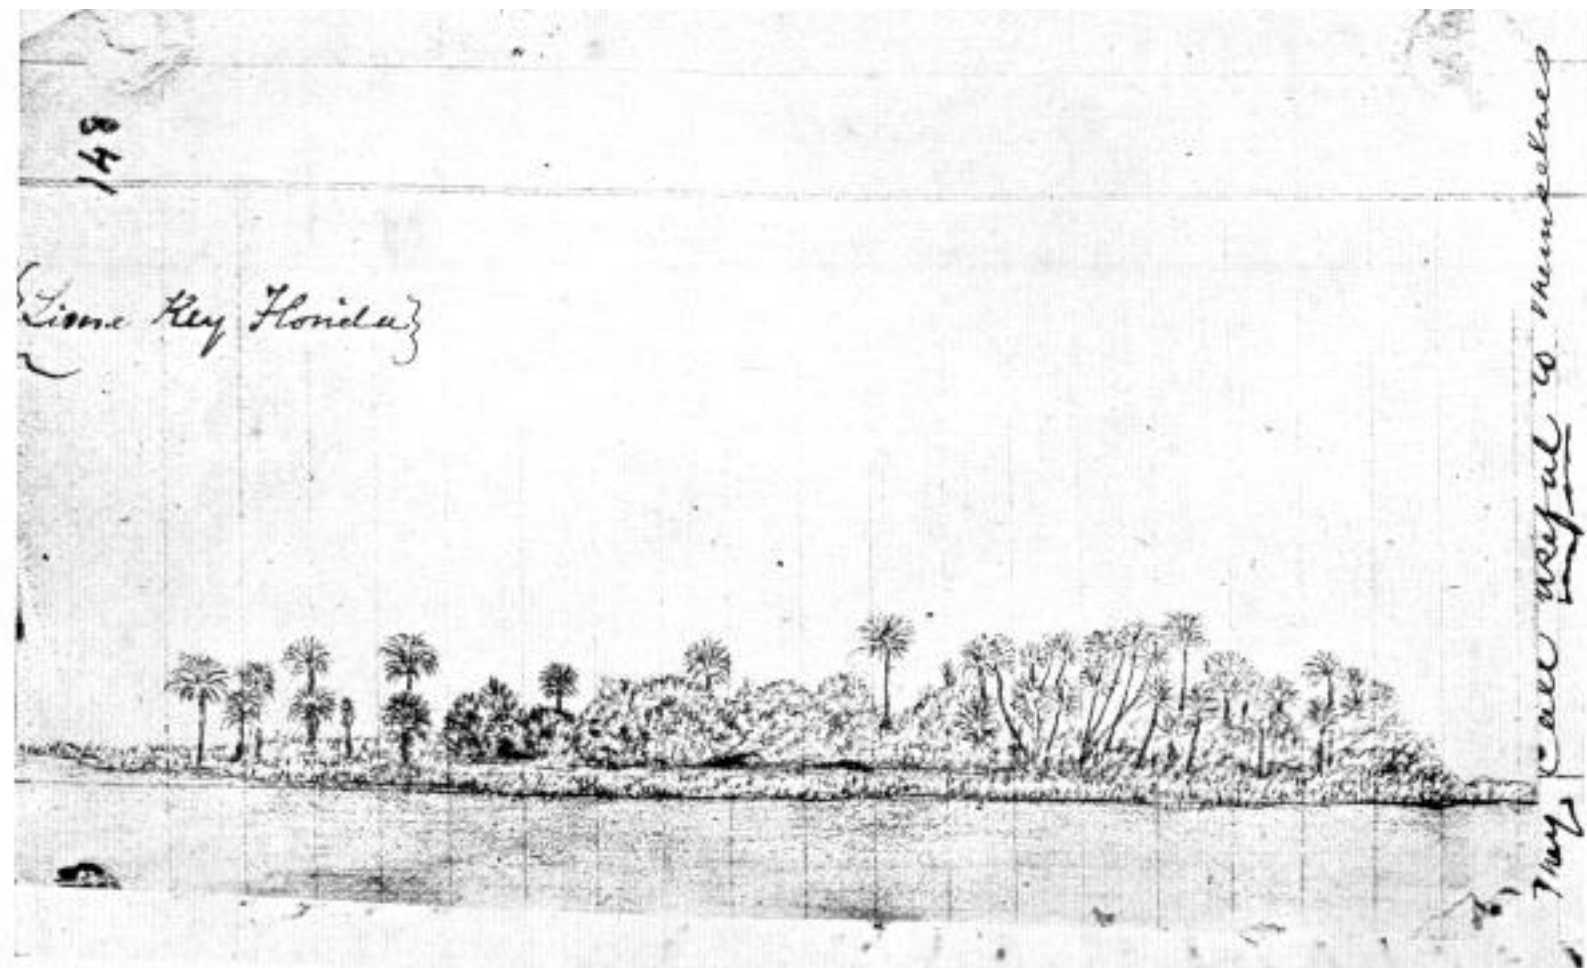 148
{Lime Key Florida}
They call useful to themselves